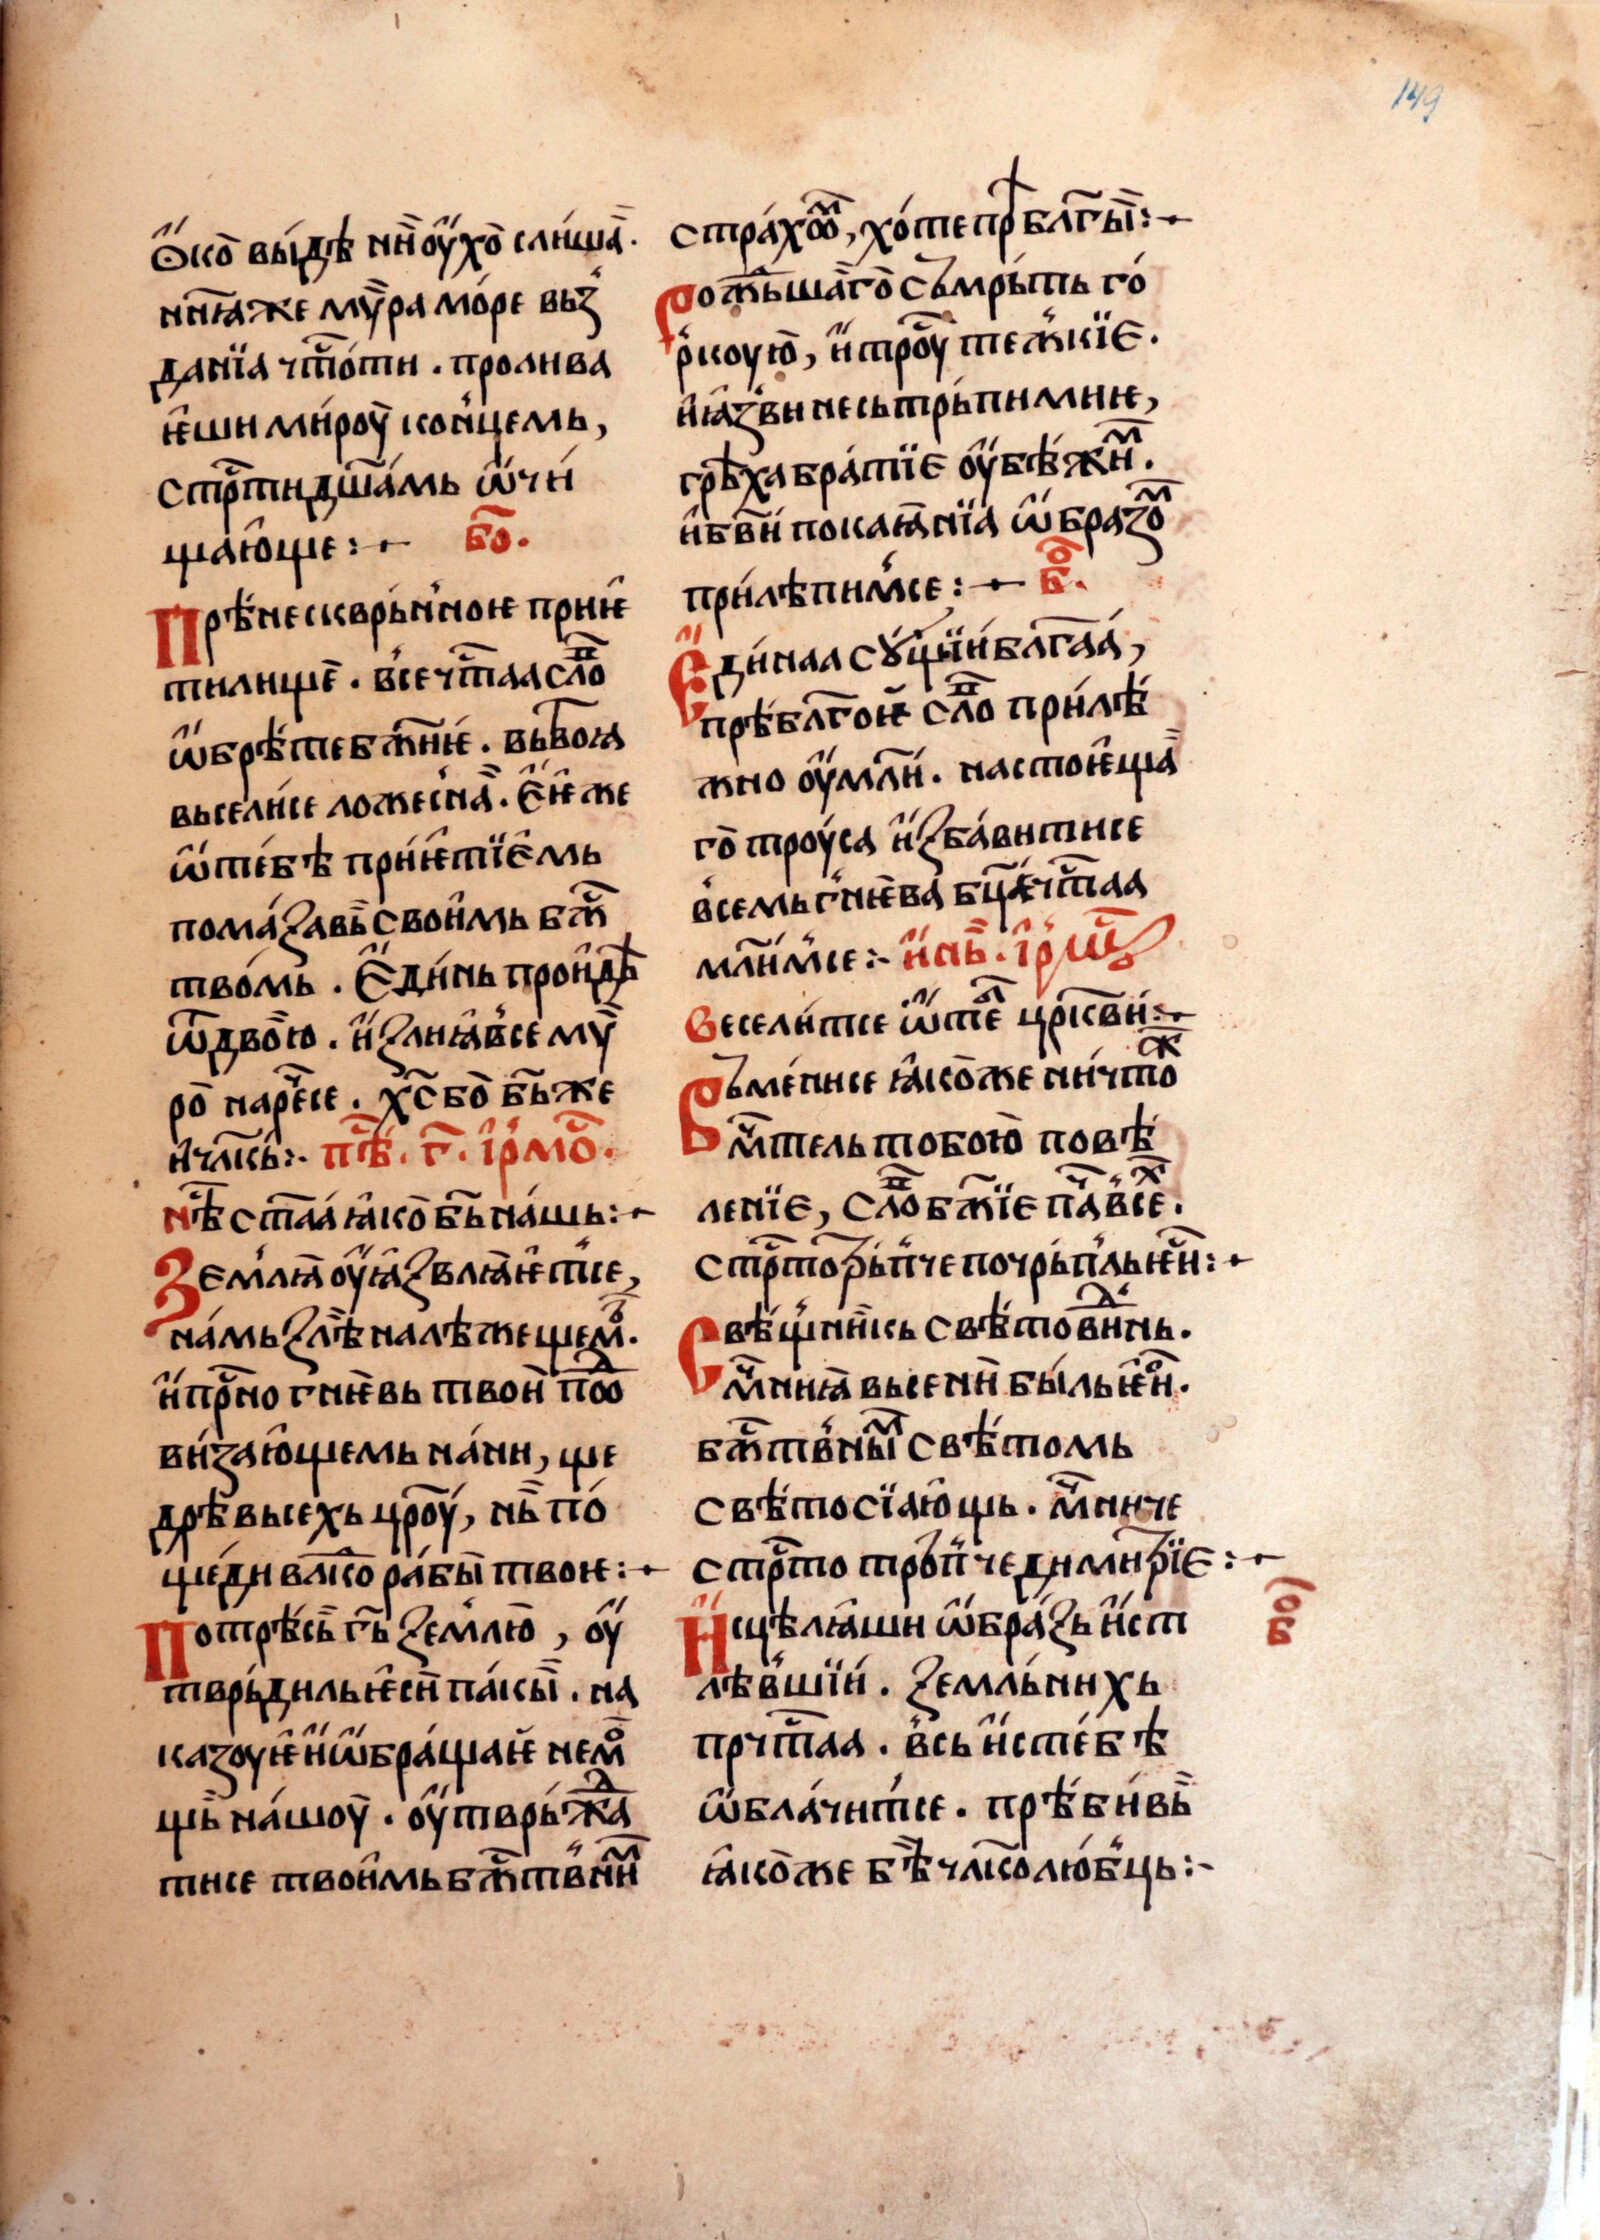 149
Ѻ҆ко̀ вы́дѣ нн҃ оу҆́хо̀ сли́ша̀.
ннꙗ҃же мѵ́ра мо́ре въз
данїа чт҃оти . пролива
ѥ҆ши ми́роу ко́н꙽цемь,
стр҃ти дш҃а́мь ѡ҆чи́
щаю҆ще :-
бо҃.
Прѣ́нескврь́н꙽ноѥ приѥ҆
тилищѐ . в꙽сечт҃аа сло҃п
ѡ҆брѣ́те бж҃нїе . вьв꙽ т꙽воꙗ
вьсели́се ложесна̀ . Е҆ѥ҆же
ѡ҆те́бѣ при́ѥ҆тїемь
пома́завь̀ свои҆мь бж҃
тво́мь . Е҆ди́нь прои҆дѣ
ѿдвою̀ . и҆злиꙗ҆в꙽се мѵ́
ро̀ наре́се . хс҃ бо̀ бь҃ же
и҆ чл҃кь :. пѣ҃. г҃. і҆рмо҃.
нѣ҃ ст҃аа́ ꙗ҆ко̀ бь҃ на́шь :-
Зе́м꙽лꙗ̀ оу҆ꙗ҆звлꙗ҆ѥ҆т꙽се,
на́мь злѣ̀ належещем꙽.
и҆ пр҃но гнѥ́вь твои҆ по҃д
ви́заю҆щемь на́ни, ще
дрѣ̀ высехь цр҃оу́, нь̀ по́
ще́ди вл҃ко ра́бы̀ твоѥ :-
Потрѣ́сь̀ гь҃ зем꙽лю̀ , оу҆
тврь́диль ѥ҆сѝ па́кы̀ . на
казоуѥ҆ и҆ ѡ҆бра́щаѥ҆ нем꙽о
щь̀ на́шоу̀ . оу҆тврь́жд҃а
тисе твои҆мь бж҃тв꙽ни҃м
стра́хо҃м, хо́те прѣ блг҃ы̀ :-
Рождьша́го̀ съмрь́ть го́
рꙿкоую̀, и҆ троу҃ теж꙽кїе .
и҆ ꙗ҆з꙽ви несьтрь́пимиѥ,
грѣ́ха бра́тїе оу҆бѣ́жи҃м .
и҆ бв҃и́ покаꙗ҆нїа ѡ҆бразо҃м
при́лѣпим꙽се :-
бо҃.
Е҆ди́наа су́щїи҆ бл҃га́а́,
прѣ́бл҃гоѥ сло҃п при́лѣ́
жно оу҆мл҃и́ . настоѥ҆ща̀
го̀ троу́са и҆зба́витисе
в꙽семь гнѥ̀ва бц҃е чт҃аа
мл҃и́м꙽се :- и҆нь̀ . і҆рмо҃
Весели́тсе ѡ҆ те҃л црк҃ви́ :-
Въме́нисе ꙗ҆ко̀же ни́что҃ж
мч҃тель тобою̀ повѣ́
ленїе, сло҃п бж҃їе пч҃а в꙽се҃х.
стр҃торь́п꙽че почрь́п꙽ль ѥ҆си҃ :-
Свѣ́щ꙽нѝкь свѣ́товн҃ль.
мч҃никꙗ̀ высенѝ бы́ль ѥ҆си҃.
бж҃тв꙽ны҃м свѣ́томь
свѣ́то сїаю҆щь . мч҃ниче
стр҃тотрь́п꙽че димитрїе :-
бо҃
И҆сцѣ́лꙗ҆ши ѡ҆бра́зь и҆ст
лѣ́в꙽шїи́ . земль́нихь
прчт҃аа . в꙽сь и҆сте́бѣ
ѡ҆бла́чит꙽се . прѣ́би́вь̀
ꙗ҆ко̀же бѣ̀ чл҃колю́б꙽ць :-